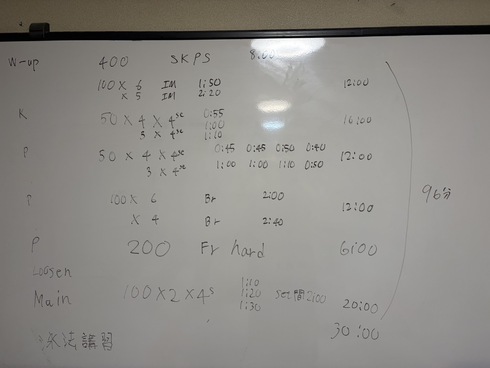 W-up 400 SKPS 8:00
100 × 6 IM 1:50 12:00
× 5 IM 2:20
K 50 × 4 × 4se 0:55 16:00
1:00
3 × 4se 1:10
P 50 × 4 × 4se 0:45 0:45 0:50 0:40 12:00
3 × 4se 1:00 1:00 1:10 0:50
P 100 × 6 Br 2:00 12:00
× 4 Br 2:40
96分
P 200 Fr hard 6:00
Loosen
Main 100×2×4s 1:10 1:20 1:30 set間2:00 20:00
泳法講習 30:00